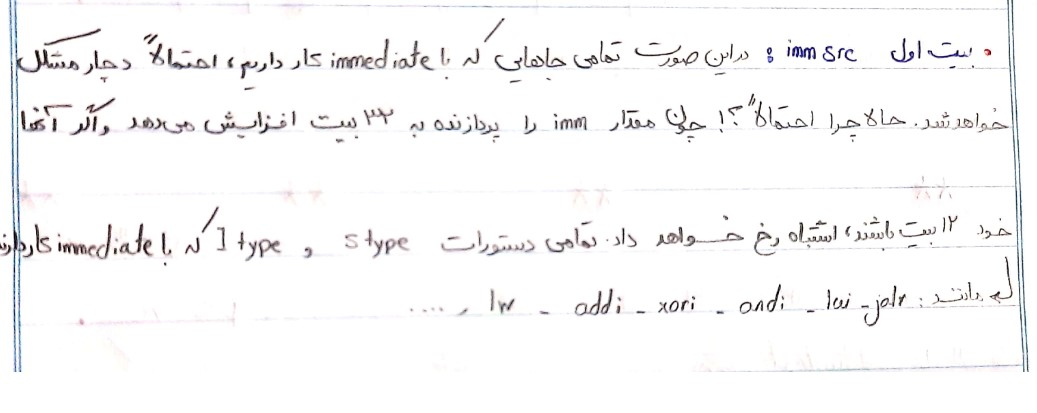 • بیت اول imm src : در این صورت تمامی جاهایی که با immediate کار داریم، احتمالاً دچار مشکل
خواهد شد. حالا چرا احتمالاً؟! چون مقدار imm را پردازنده به ۳۲ بیت افزایش می‌دهد و اگر آنها
خود ۱۲ بیت باشند، اشتباه رخ خواهد داد. تمامی دستورات S type و I type که با immediate کار دارند
مانند: lw - addi - xori - andi - lui - jalr , ....